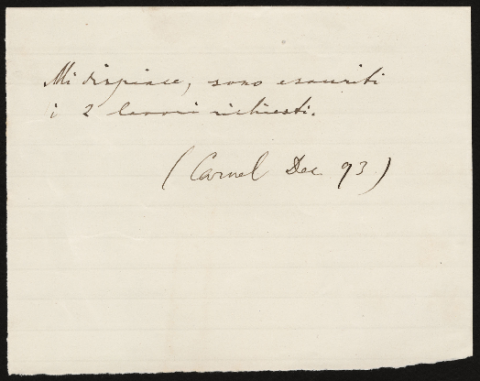 Mi dispiace, sono esauriti
i 2 lavori richiesti.
(Carnel Dec 93)